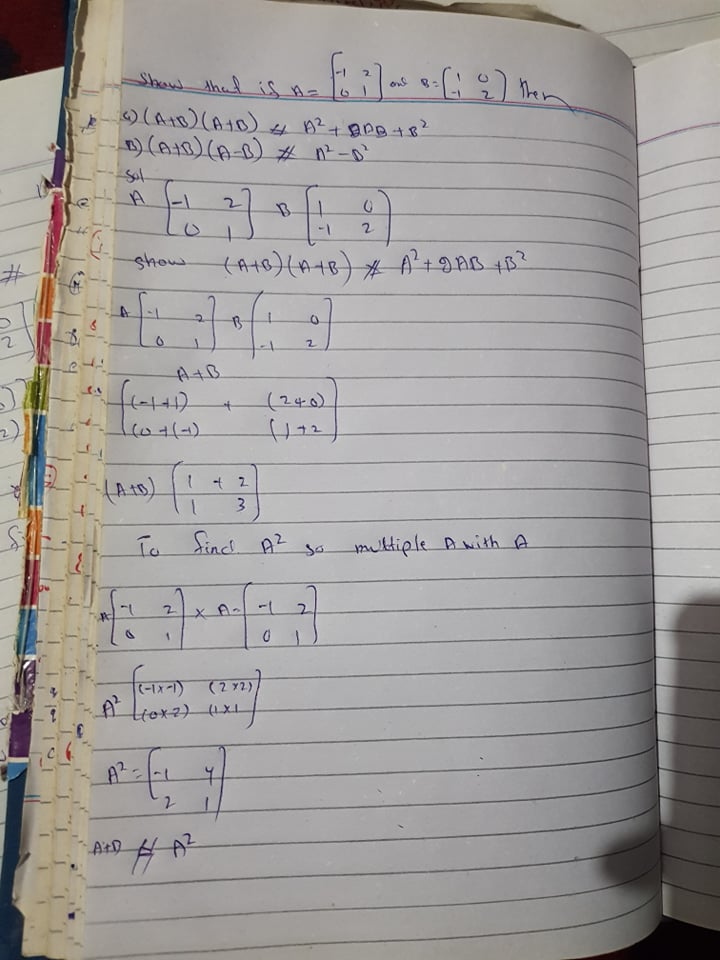 Show that is A = [-1 2 0 1] and B = [1 0 -1 2] then
a) (A+B)(A+B) ≠ A² + 2AB + B²
b) (A+B)(A-B) ≠ A² - B²
Sol
A [-1 2 0 1] B [1 0 -1 2]
show (A+B)(A+B) ≠ A² + 2AB + B²
A [-1 2 0 1] B [1 0 -1 2]
A+B
[(-1+1) + (2+0)
(0+(-1) (1+2]
(A+B) [1 + 2
1 3]
To find A² so multiple A with A
A [-1 2 0 1] × A = [-1 2 0 1]
A² [(-1×-1) (2×2)
(0×2) (1×1]
A² = [-1 4
2 1]
A+B ≠ A²